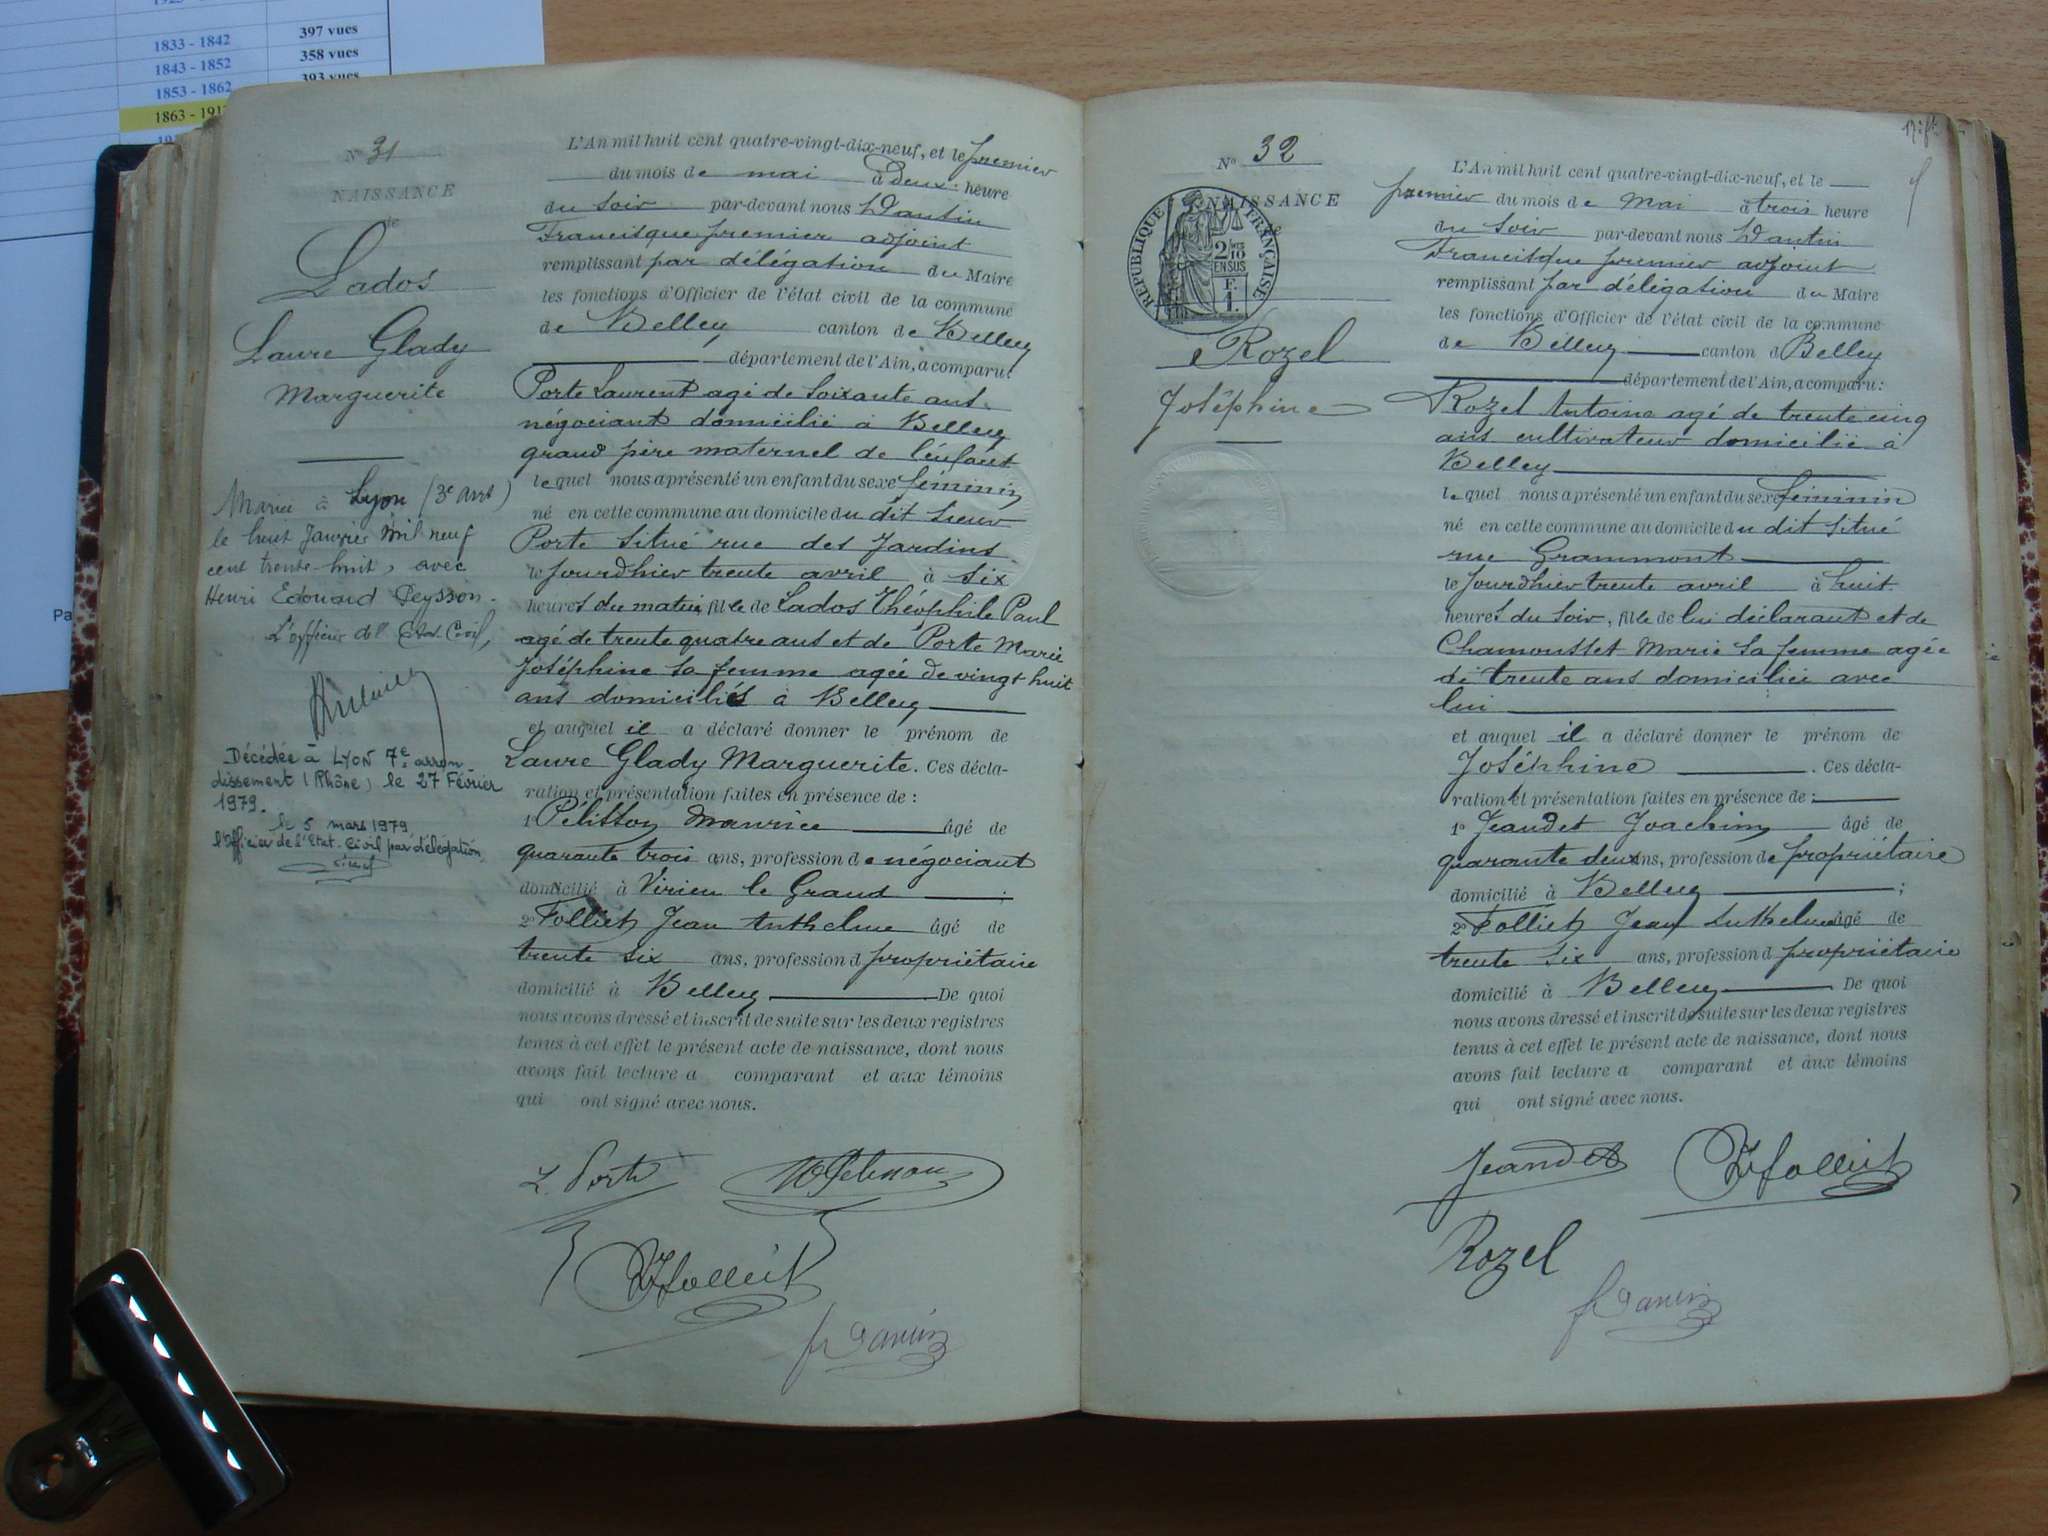 1833 - 1842 397 vues
1843 - 1852 358 vues
1853 - 1862 393 vues
1863 - 191
Pa
N° 31
NAISSANCE
de
Lados
Laure Glady
Marguerite
Mariée à Lyon (3e arrt)
le huit Janvier mil neuf
cent trente-huit, avec
Henri Edouard Peysson.
L'officier de l'Etat Civil,
Décédée à LYON 7e arron
dissement (Rhône) le 27 Février
1979.
le 5 mars 1979
l'Officier de l'Etat-Civil par délégation,
L'An mil huit cent quatre-vingt-dix-neuf, et le premier
du mois de mai à deux heure
du soir par-devant nous Dantin
Francisque premier adjoint
remplissant par délégation du Maire
les fonctions d'Officier de l'état civil de la commune
de Belley canton de Belley
département de l'Ain, a comparu:
Porte Laurent agé de soixante ans
négociant domicilié à Belley
grand père maternel de l'enfant
lequel nous a présenté un enfant du sexe féminin
né en cette commune au domicile du dit sieur
Porte situé rue des Jardins
le jourdhier trente avril à six
heures du matin, fille de Lados Théophile Paul
agé de trente quatre ans et de Porte Marie
Joséphine sa femme agée de vingt huit
ans domiciliés à Belley
et auquel il a déclaré donner le prénom de
Laure Glady Marguerite. Ces décla-
ration et présentation faites en présence de :
1° Pélisson Maurice âgé de
quarante trois ans, profession de négociant
domicilié à Virieu le Grand ;
2° Folliet Jean Anthelme âgé de
trente six ans, profession d propriétaire
domicilié à Belley De quoi
nous avons dressé et inscrit de suite sur les deux registres
tenus à cet effet le présent acte de naissance, dont nous
avons fait lecture a comparant et aux témoins
qui ont signé avec nous.
L. Porte M Pelisson
Folliet
fr Dantin
N° 32
NAISSANCE
de
RÉPUBLIQUE FRANÇAISE
2/10
EN SUS
F.
1.
Rozel
Joséphine
L'An mil huit cent quatre-vingt-dix-neuf, et le
premier du mois de mai à trois heure
du soir par-devant nous Dantin
Francisque premier adjoint
remplissant par délégation du Maire
les fonctions d'Officier de l'état civil de la commune
de Belley canton d Belley
département de l'Ain, a comparu :
Rozel Antoine agé de trente cinq
ans cultivateur domicilié à
Belley
lequel nous a présenté un enfant du sexe féminin
né en cette commune au domicile du dit situé
rue Grammont
le jourdhier trente avril à huit
heures du soir, fille de lui déclarant et de
Chamousset Marie sa femme agée
de trente ans domiciliée avec
lui
et auquel il a déclaré donner le prénom de
Joséphine . Ces décla-
ration et présentation faites en présence de :
1° Jeandet Joachim âgé de
quarante deux ans, profession de propriétaire
domicilié à Belley ;
2° Folliet Jean Anthelme âgé de
trente six ans, profession d propriétaire
domicilié à Belley De quoi
nous avons dressé et inscrit de suite sur les deux registres
tenus à cet effet le présent acte de naissance, dont nous
avons fait lecture a comparant et aux témoins
qui ont signé avec nous.
Jeandet Folliet
Rozel
fr Dantin